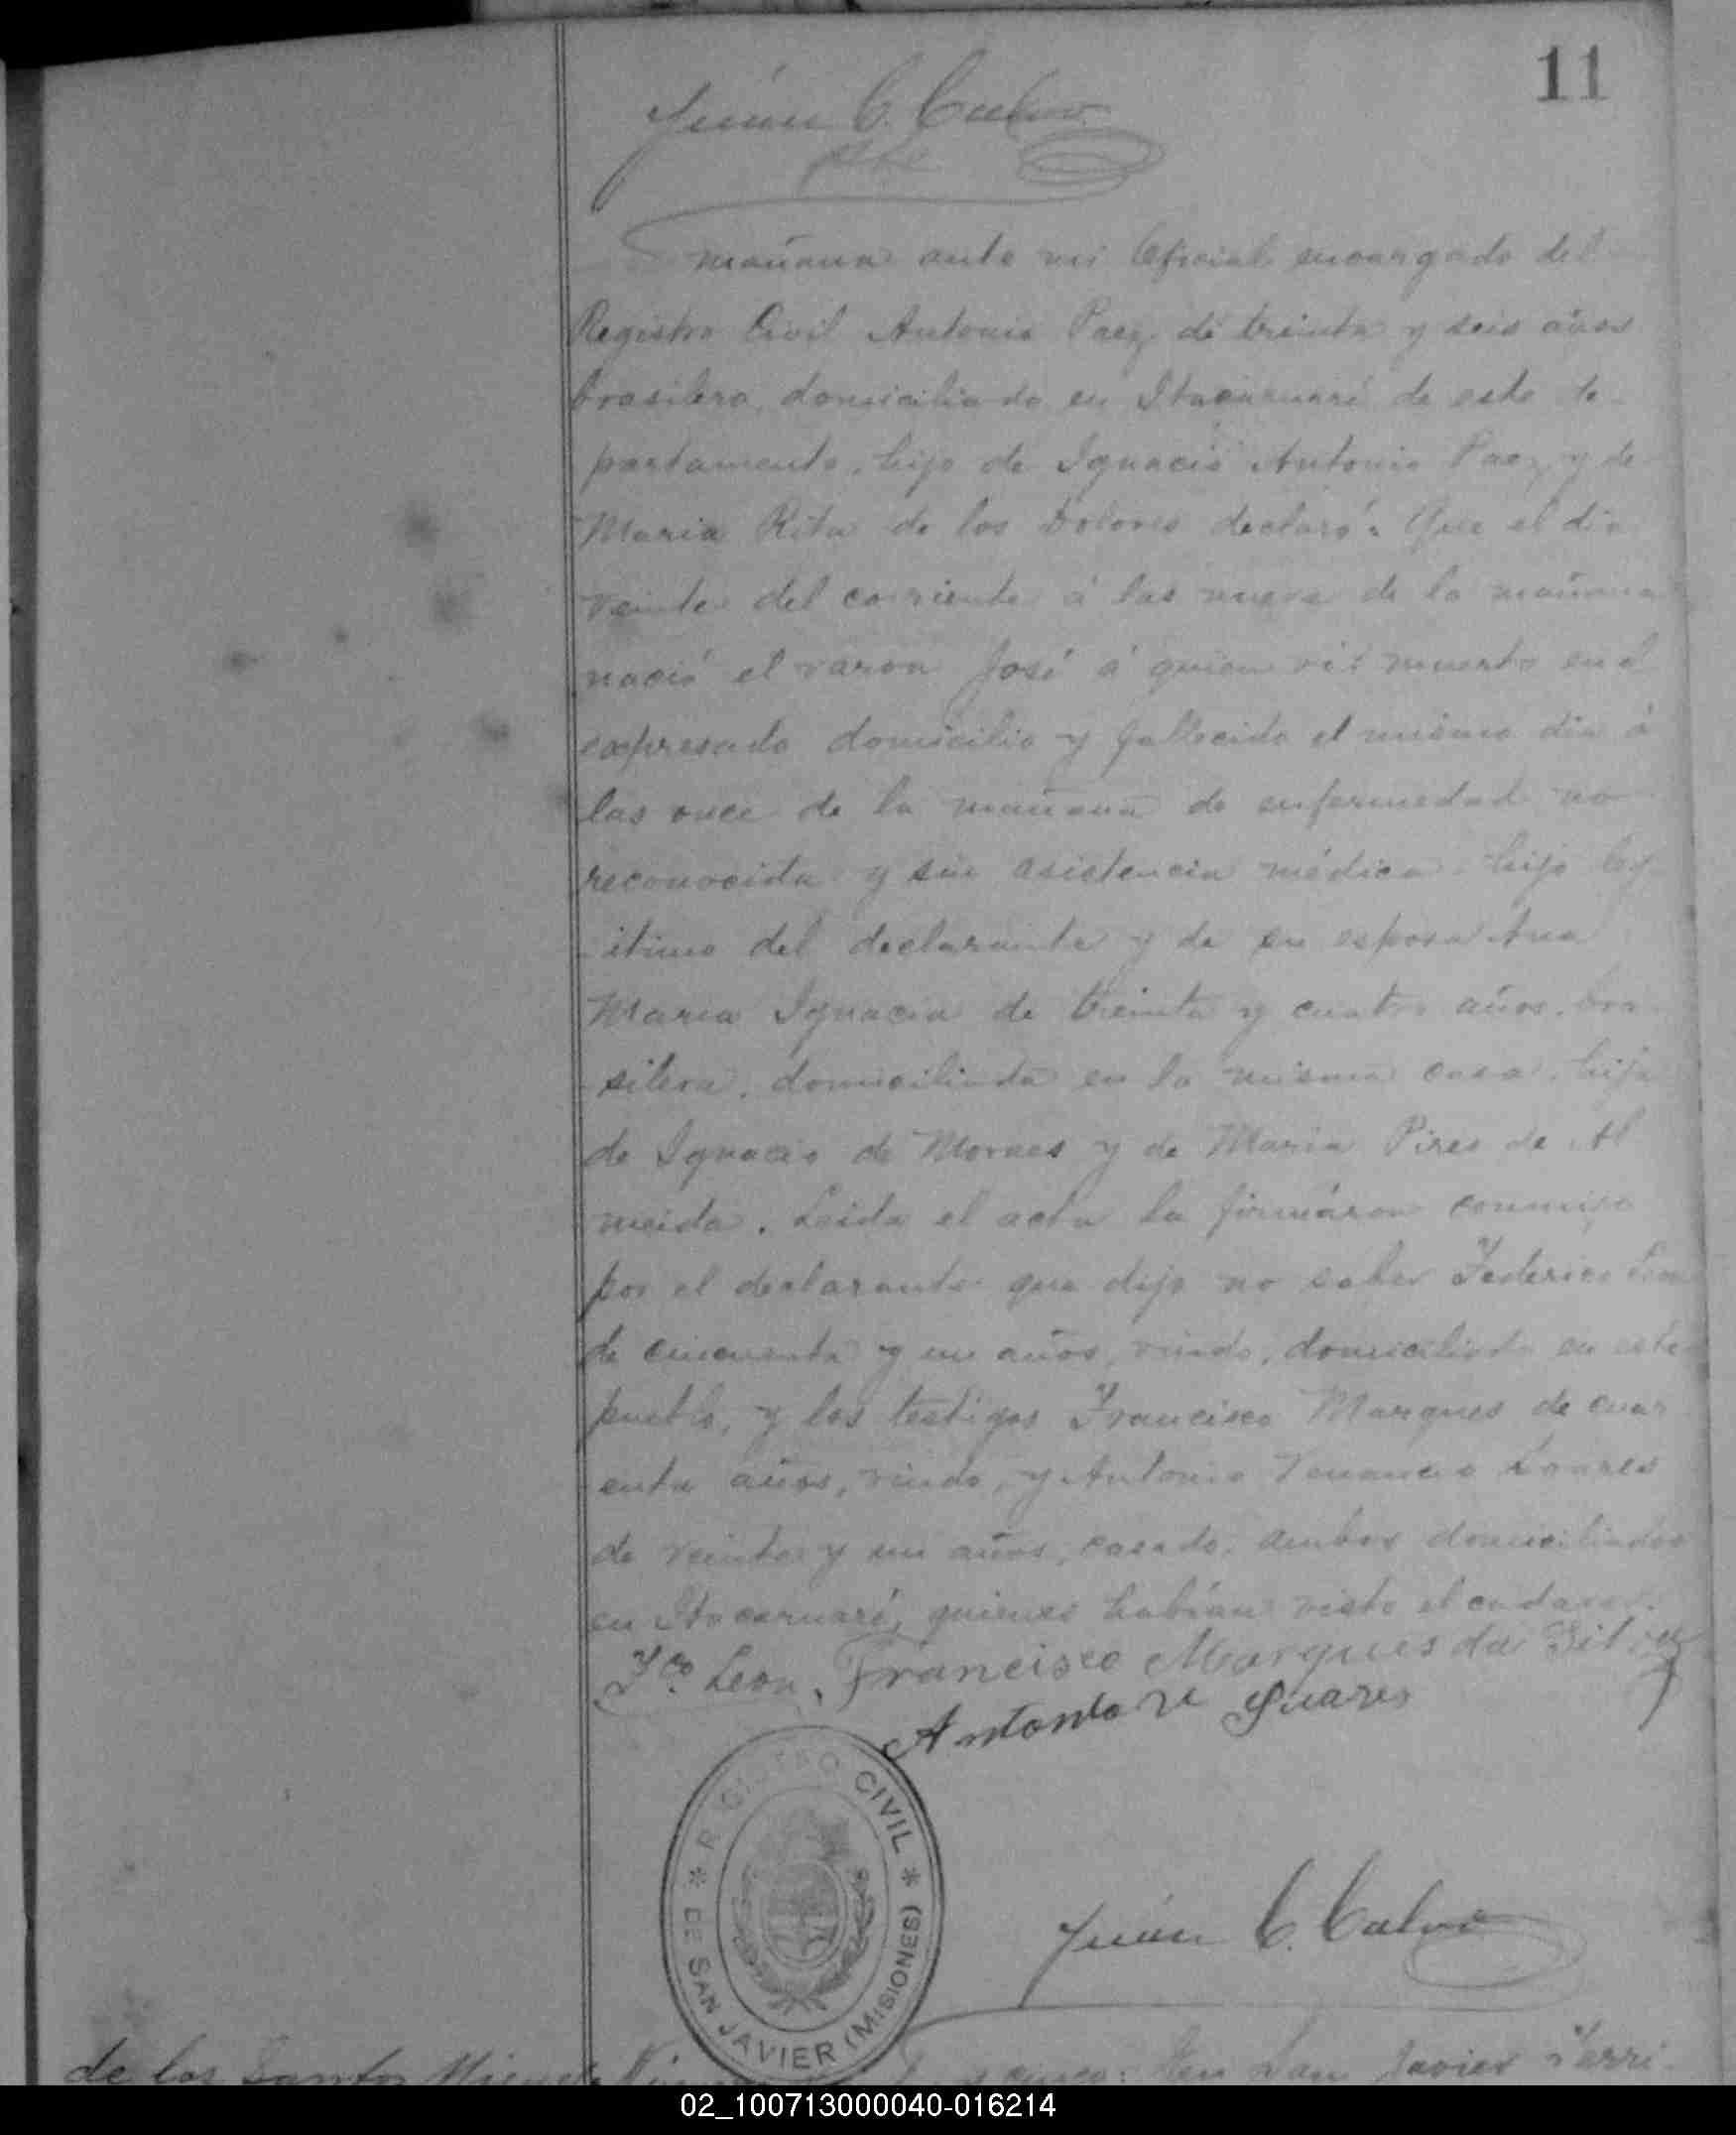 11
Juan C. Calvo
mañana ante mi Oficial encargado del
Registro Civil Antonio Paez de treinta y seis años
brasilero, domiciliado en Itacaruaré de este de-
partamento, hijo de Ignacio Antonio Paez y de
Maria Rita de los Dolores declaró: Que el dia
veinte del corriente á las nueve de la mañana
nació el varon José á quien ví muerto en el
expresado domicilio y fallecido el mismo dia á
las once de la mañana de enfermedad no
reconocida y sin asistencia médica. hijo leg-
itimo del declarante y de su esposa Ana
Maria Ignacia de treinta y cuatro años, bra-
silera, domiciliada en la misma casa, hija
de Ignacio de Moraes y de Maria Pires de Al
meida. Leida el acta la firmáron conmigo
por el declarante que dijo no saber Federico Leon
de cincuenta y un años, viudo, domiciliado en este
pueblo, y los testigos Francisco Marques de cuar
enta años, viudo, y Antonio Venancio Soares
de veinte y un años, casado, ambos domiciliados
en Itacaruaré, quienes habían visto el cadaver.
Fco. Leon. Francisco Marques da Silva
Antonio V Suares
REGISTRO CIVIL
DE SAN JAVIER (MISIONES)
Juan C. Calvo
de los Santos
y cinco: En San Javier Terri-
02_100713000040-016214